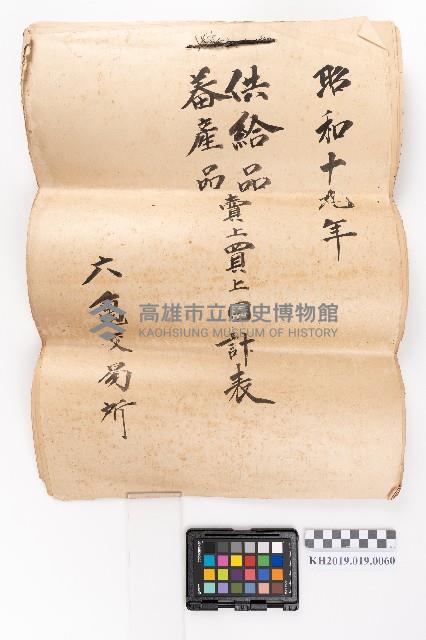 昭和十九年
供給品賣上買上日計表
蕃產品
六龜交易所
高雄市立歷史博物館
KAOHSIUNG MUSEUM OF HISTORY
KH2019.019.0060